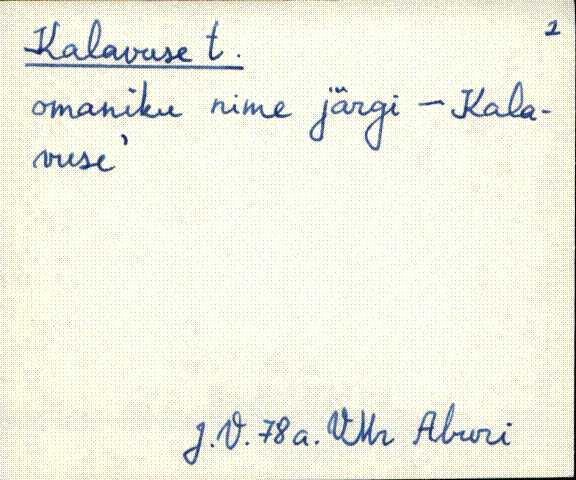 2
Kalavuse t.
omaniku nime järgi – Kala-
vuse'
J.V. 78 a. VMr Aburi